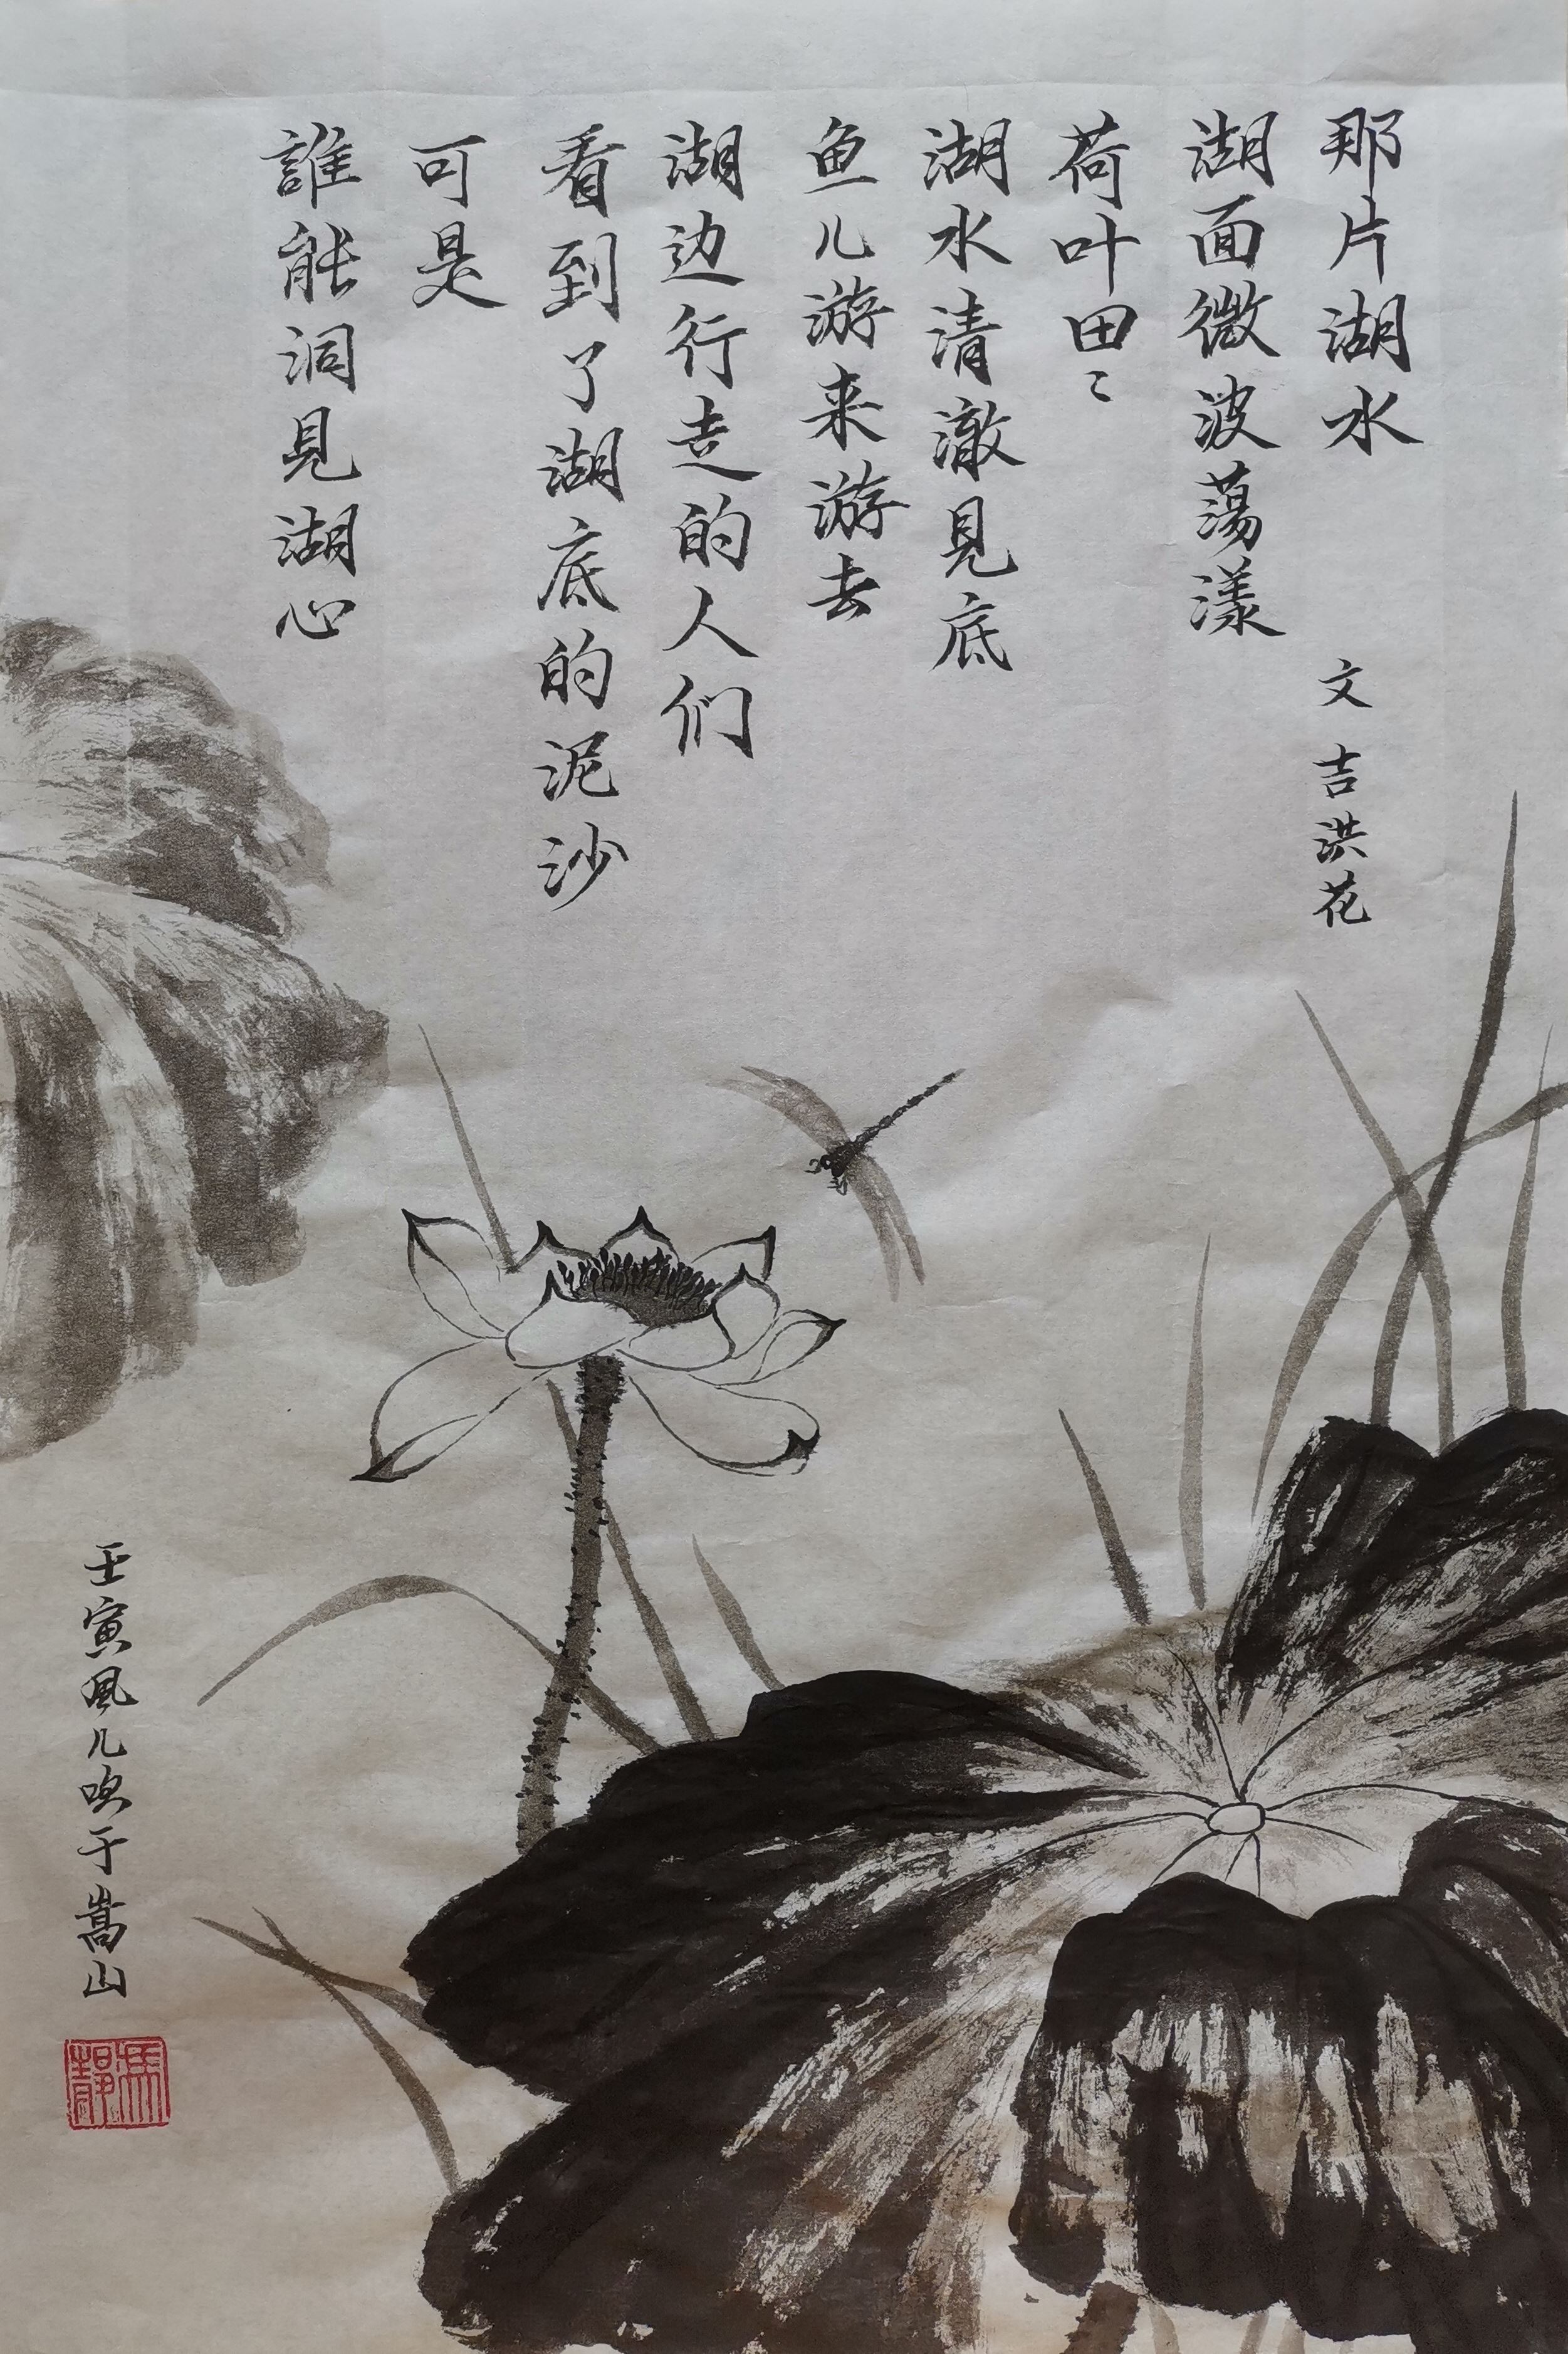 那片湖水
文 吉洪花
湖面微波蕩漾
荷叶田〻
湖水清澈見底
鱼儿游来游去
湖边行走的人们
看到了湖底的泥沙
可是
誰能洞見湖心
壬寅風儿吹于嵩山